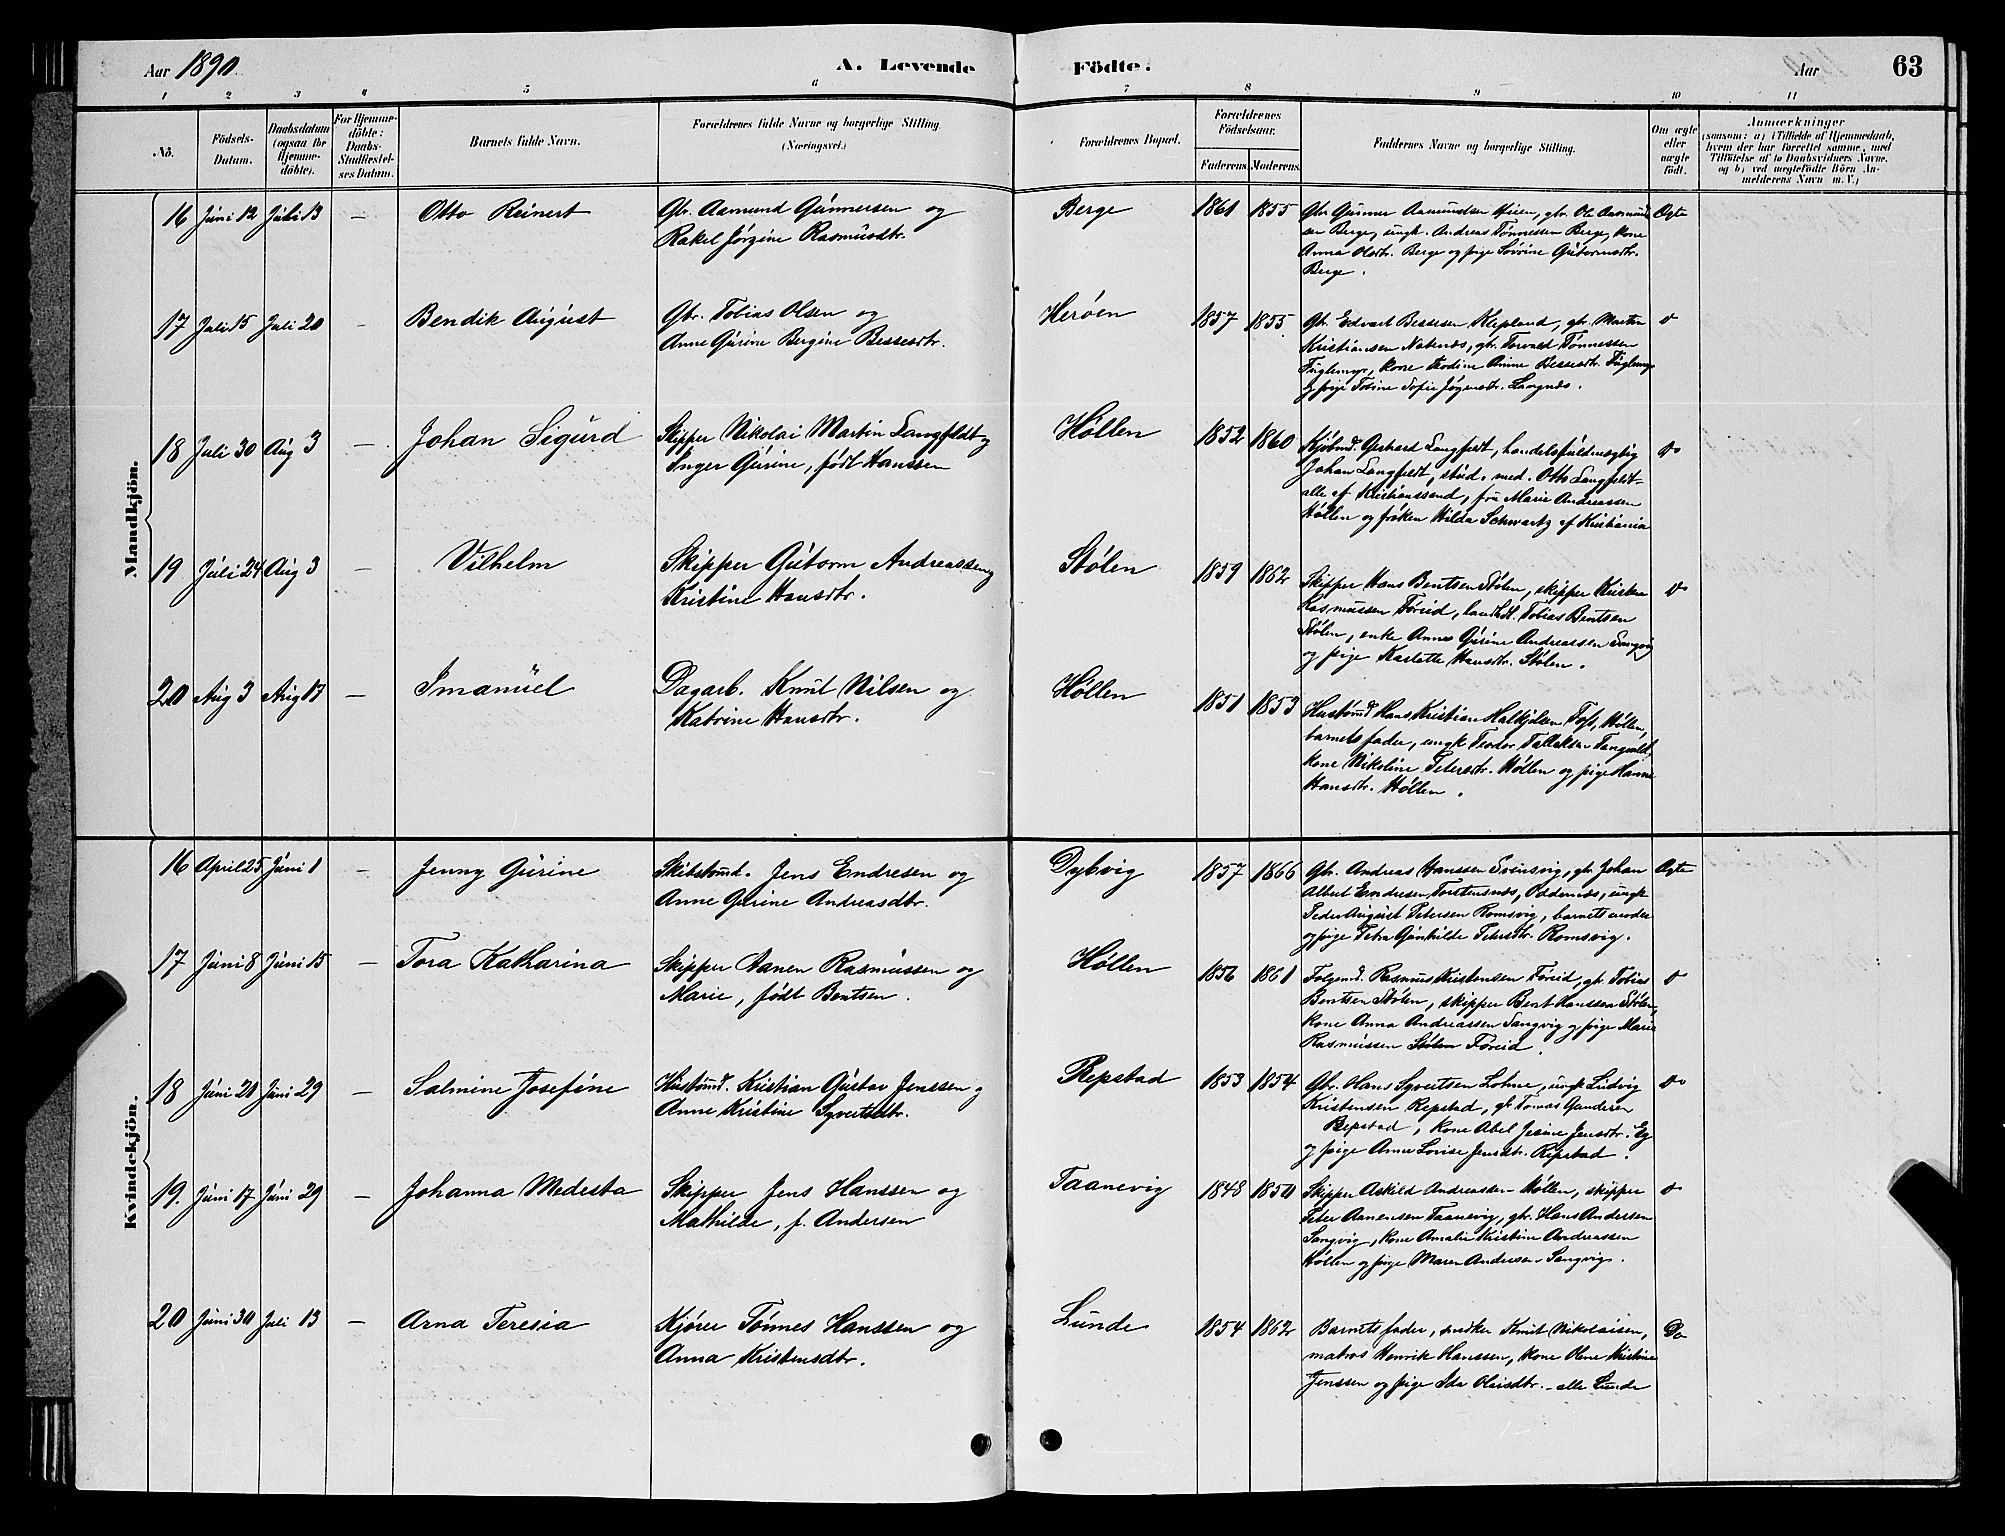 Aar 1890. A. Levende Födte. Aar 63
1 2 3 4 5 6 7 8 9 10 11
No. Födsels-Datum. Daabsdatum (ogsaa for Hjemmedöbte). For Hjemmedöbte: Daabs-Stadfæstelses Datum. Barnets fulde Navn. Forældrenes fulde Navne og borgerlige Stilling. (Næringsvei.) Forældrenes Bopæl. Forældrenes Födselsaar. Faderens Moderens Faddernes Navne og borgerlige Stilling. Om ægte eller uægte födt. Anmærkninger (saasom: a) i Tilfælde af Hjemmedaab, hvem der har forrettet samme, med Tilföielse af to Daabsvidners Navne, og b) ved uægtefödte Börn Anmelderens Navn m. V.)
Mandkjön.
16 Juni 12 Juli 13 — Otto Reinert
Gbr. Aamund Gunnersen og
Rakel Jørgine Rasmusdtr.
Berge 1861 1855
Gbr Gunner Aamundsen Heien, gbr. Ole Aamund
sen Berge, ungk. Andreas Tønnessen Berge, kone
Anna Olsdtr. Berge og pige Sovrine Gutormsdtr.
Berge.
Ægte
17 Juli 15 Juli 20 — Bendik August
Gbr. Tobias Olsen og
Anne Gurine Bergine Bessesdtr.
Herøen 1857 1855
Gbr. Edvart Bessesen Klepland, gbr. Martin
Kristiansen Nabenes, gbr. Torvald Tønnessen
Fuglemyr, kone Andine Bessesdtr. Fuglemyr
og pige Tobine Sofie Jørgensdtr. Langnes.
do
18 Juli 30 Aug 3 — Johan Sigurd
Skipper Nikolai Martin Langfeldt og
Inger Gurine, født Hanssen
Høllen 1852 1860
Kjøbmd. Gerhard Langfeldt, handelsfuldmægtig
Johan Langfeldt, stud. med. Otto Langfeldt -
alle af Kristianssand, fru Marie Andreassen
Høllen og frøken Hilda Schwartz af Kristiania
do
19 Juli 24 Aug 3 — Vilhelm
Skipper Gutorm Andreassen og
Kristine Hansdtr.
Stølen 1859 1862
Skipper Hans Bentsen Stølen, skipper Kristen
RasmussenFøreid, Tobias Bentsen
Stølen, enke Anne Gurine Andreassen Langvig
og pige Karlotte Hansdtr. Stølen.
do
20 Aug 3 Aug 17 — Imanuel
Dagarb. Knut Nilsen og
Katrine Hansdtr.
Høllen 1851 1853
Hustømd Hans Kristian Halkjelsen Tofs, Høllen,
barnets fader, ungk Teodor Tallaksen Tangvald,
kone Nikoline Petersdtr. Høllen og pige Hanne
Hansdtr. Høllen.
Kvindekjön.
16 April 25 Juni 1 — Jenny Gurine
Skibstømd. Jens Endresen og
Anne Gurine Andreasdtr.
Dybvig 1857 1866
Gbr. Andreas Hanssen Svinsvig, gbr Johan
Albert Endresen Torstensnes, Oddernes, ungk
Peder August Petersen Romsvig, barnets moder
og pige Petra Gunhilde Petersdtr. Romsvig.
Ægte
17 Juni 8 Juni 15 — Tora Katharina
Skipper Aanen Rasmussen og
Marie, født Bentsen.
Høllen 1856 1861
Folgemd. Rasmus Kristensen Føreid, gbr Tobias
Bentsen Stølen, skipper Bent Hanssen Stølen,
kone Anna Andreassen Langvig og pige Marie
Rasmussen Stølen Føreid.
do
18 Juni 20 Juni 29 — Salmine Josefine
Hustømd. Kristian Gustav Jenssen og
Anne Kristine Syvertsdtr.
Repstad 1853 1854
Gbr. Hans Syvertsen Lohne, ungk Ludvig
Kristensen Repstad, gbr Tomas Gundersen
Repstad, kone Abel Jesine Jensdtr. Eg
og pige Anne Lovise Jensdtr. Repstad.
do
19. Juni 17 Juni 29 — Johanna Medesta
Skipper Jens Hanssen og
Mathilde, f. Andersen
Taanevig 1848 1850
Skipper Askild Andreassen Høllen, skipper
Peter Aanensen Taanevig, gbr. Hans Andersen
Langvig, kone Amalie Kristine Andreassen
Høllen og pige Maren Andersen Langvig.
do
20 Juni 30 Juli 13 — Arna Teresia
Kjører Tønnes Hanssen og
Anna Kristensdtr.
Lunde 1854 1862
Barnets fader, snedker Knut Nikolaisen,
matros Henrik Hanssen, kone Olene Kristine
Jenssen og pige Ida Olaisdtr. - alle Lunde
Do